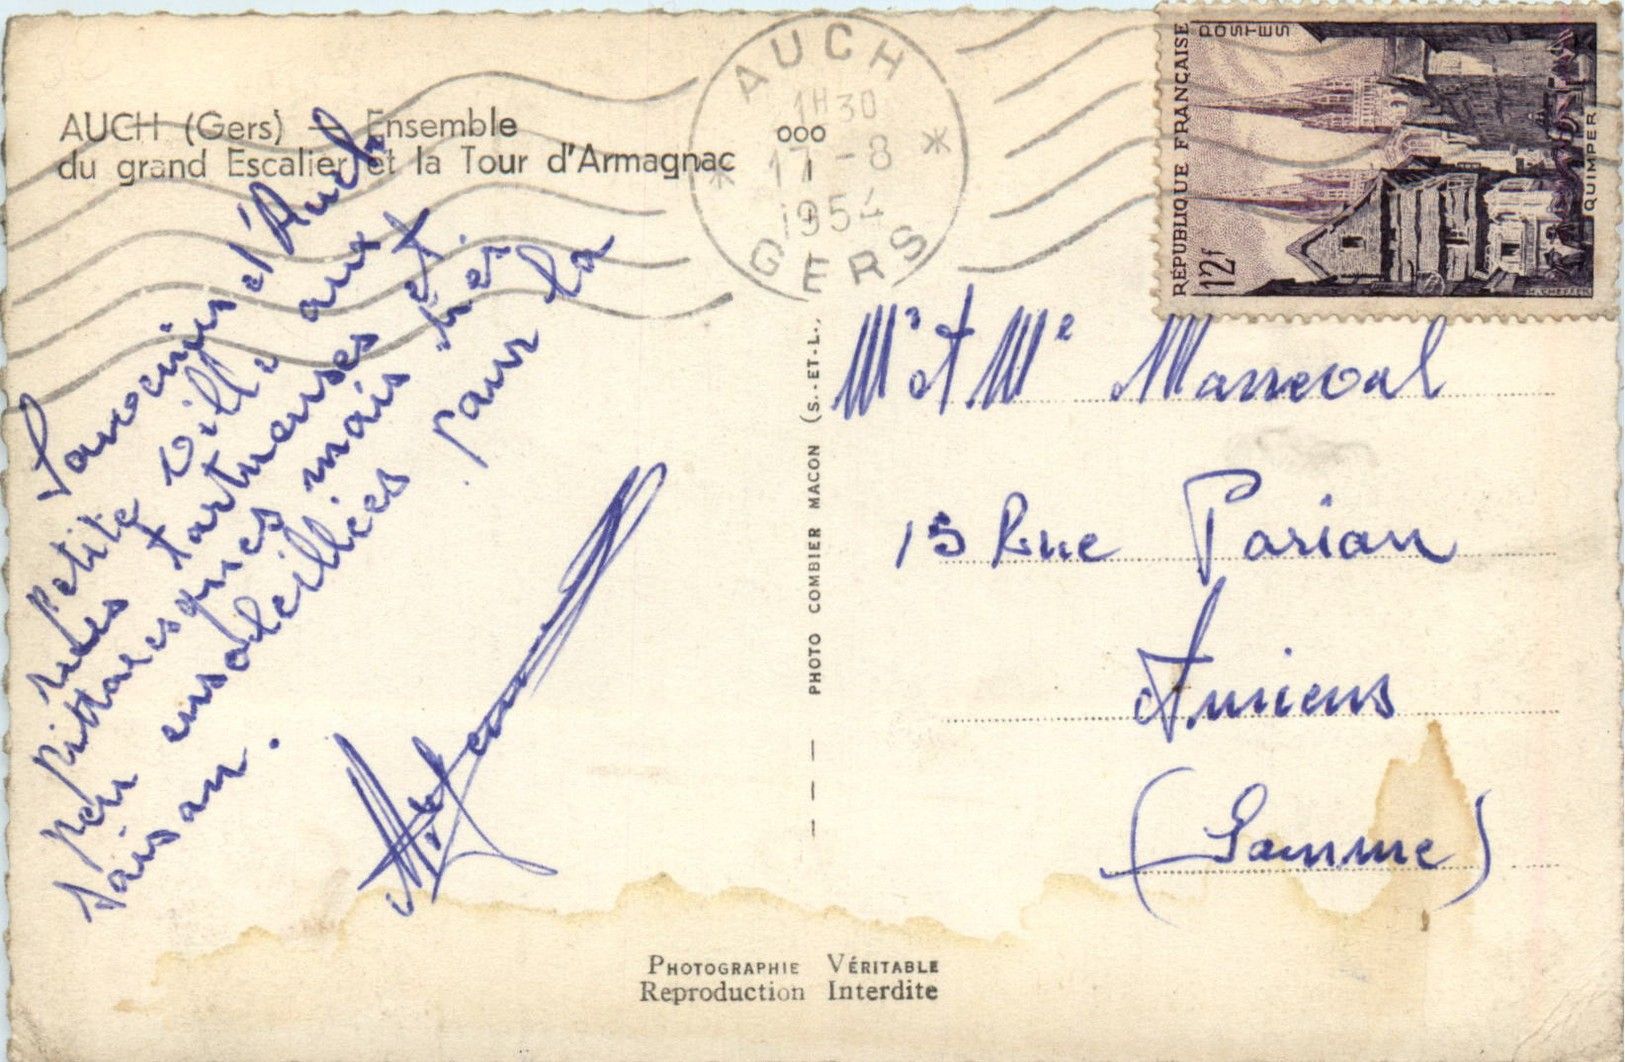 AUCH (Gers) — Ensemble
du grand Escalier et la Tour d'Armagnac
AUCH
1H30
17 - 8
1954
GERS
RÉPUBLIQUE FRANÇAISE
POSTES
12f
QUIMPER
d'Auch
Petite ville aux
rues tortueuses et
pittoresques mais très
peu ensoleillées pour la
saison.
PHOTO COMBIER MACON (S.-ET-L.,
Mr et Me Masseval
15 Rue
Amiens
(Somme)
PHOTOGRAPHIE VÉRITABLE
Reproduction Interdite